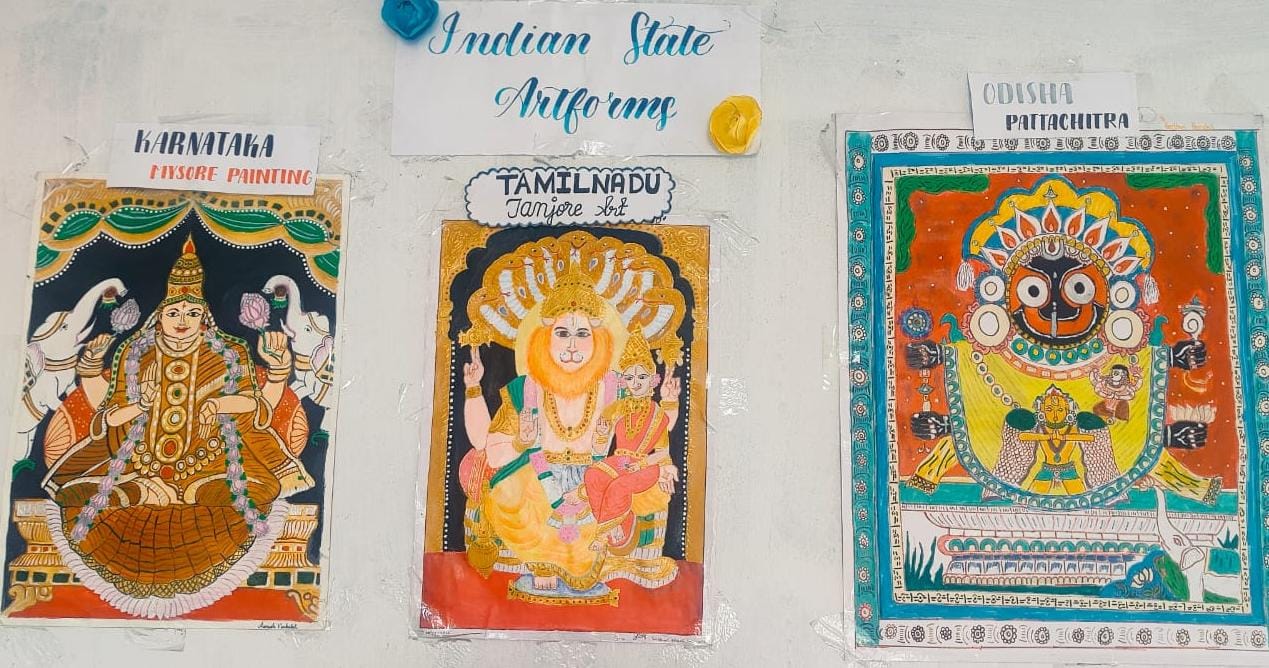 Indian State
Artforms
KARNATAKA
MYSORE PAINTING
TAMILNADU
Tanjore Art
ODISHA
PATTACHITRA